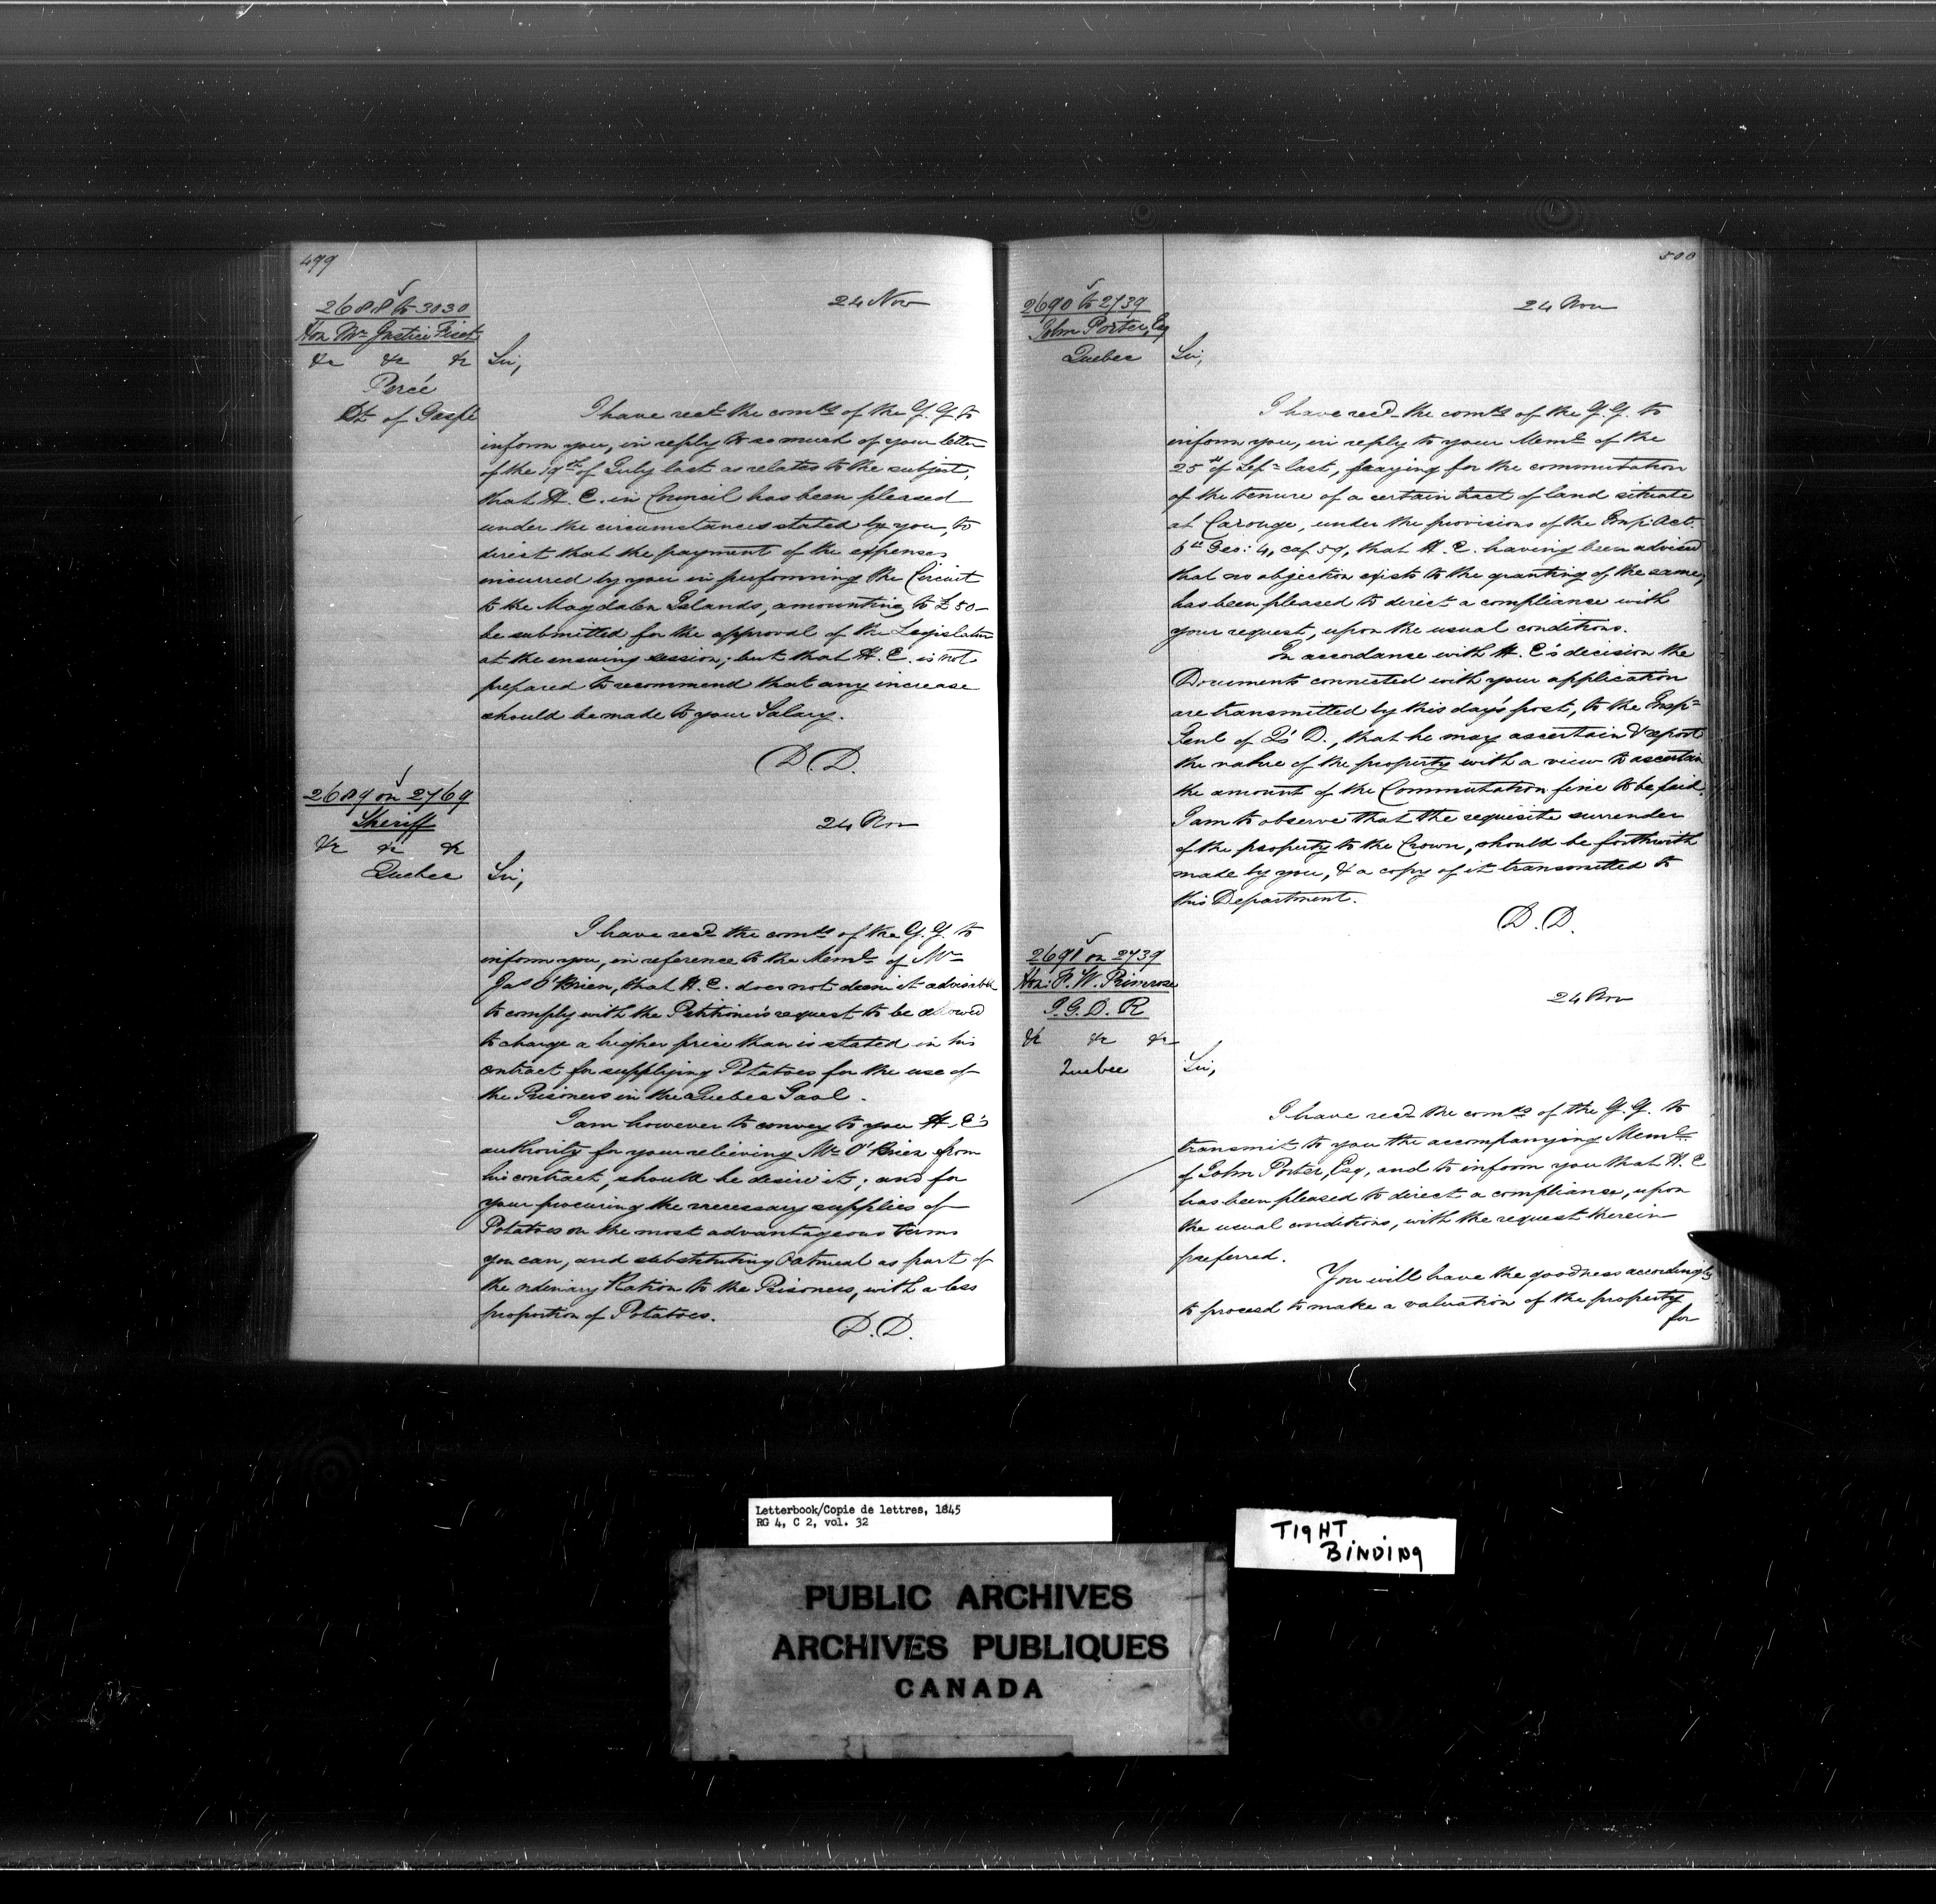 499
2688 to 3030
Hon Mr Justice Fiset
&c &c &c
Percé
Dt of Gaspé
24 Nov
Sir,
I have recd. the comds of the G. G. to
inform you, in reply to so much of your letter
of the 19th of July last as relates to the subject,
that H. E. in Council has been pleased
under the circumstances stated by you, to
direct that the payment of the expenses
incurred by you in performing the Circuit
to the Magdalen Islands, amounting to £50-
be submitted for the approval of the Legislature
at the ensuing session; but that H. E. is not
prepared to recommend that any increase
should be made to your Salary.
D.D.
2689 on 2769
Sheriff
&c &c &c
Quebec
24 Nov
Sir,
I have recd the comds of the G. G. to
inform you, in reference to the Meml. of Mr
Jas O'Brien, that H. E. does not deem it advisable
to comply with the Petitioner's request to be allowed
to charge a higher price than is stated in his
contract for supplying Potatoes for the use of
the Prisoners in the Quebec Gaol.
I am however to convey to you H. E's
authority for your relieving Mr O'Brien from
his contract, should he desire it; and for
your procuring the necessary supplies of
Potatoes on the most advantageous terms
you can, and substituting Oatmeal as part of
the ordinary Ration to the Prisoners, with a less
proportion of Potatoes.
D.D.
500
2690 to 2739
John Porter, Esq
Quebec
24 Nov
Sir,
I have recd. the comds of the G. G. to
inform you, in reply to your Meml of the
25th of Sepr last, praying for the commutation
of the tenure of a certain tract of land situate
at Carouge, under the provisions of the Imp: Act.
6th Geo: 4, cap 59, that H. E. having been advised
that no objection exists to the granting of the same,
has been pleased to direct a compliance with
your request, upon the usual conditions.
In accordance with H. E's decision the
Documents connected with your application
are transmitted by this day's post, to the Insp.
Genl of Q's D., that he may ascertain & report
the nature of the property with a view to ascertain
the amount of the Commutation fine to be paid.
I am to observe that the requisite surrender
of the property to the Crown, should be forthwith
made by you, & a copy of it transmitted to
this Department.
D.D.
2691 on 2739
Hon: F. W. Primrose
I. G. D. R
&c &c &c
Quebec
24 Nov
Sir,
I have recd the comds of the G. G. to
transmit to you the accompanying Meml.
of John Porter, Esq, and to inform you that H. E
has been pleased to direct a compliance, upon
the usual conditions, with the request therein
preferred.
You will have the goodness accordingly
to proceed to make a valuation of the property
for
Letterbook/Copie de lettres, 1845
RG 4, C 2, vol. 32
TIGHT
BINDING
PUBLIC ARCHIVES
ARCHIVES PUBLIQUES
CANADA